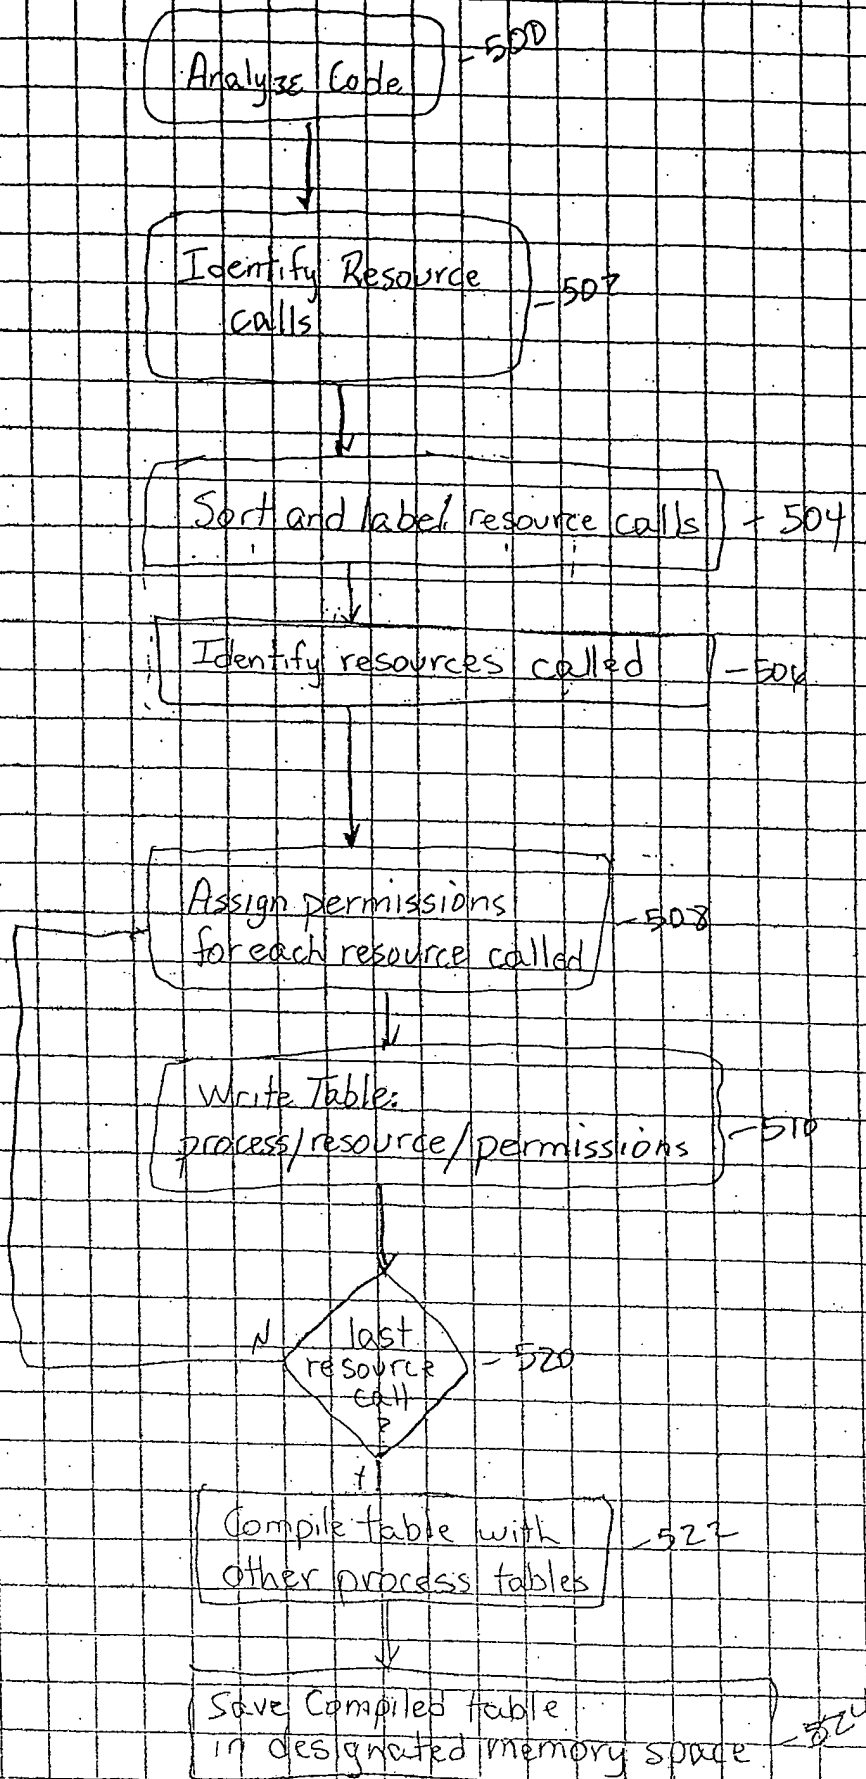 Analyze Code
- 500
Identify Resource
calls
- 502
Sort and label resource calls
- 504
Identify resources called
- 506
Assign permissions
for each resource called
- 508
Write Table:
process/resource/permissions
- 510
last
resource
call
?
N
- 520
Y
Compile table with
other process tables
- 522
Save Compiled table
in designated memory space
- 524